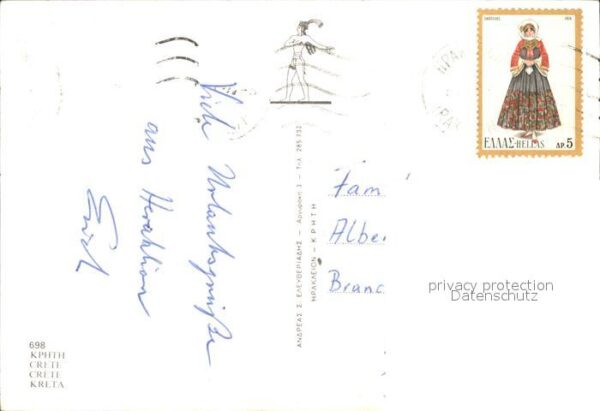 Viele Urlaubsgrüße
aus Heraklion
698
ΚΡΗΤΗ
CRETE
CRETE
KRETA
ΑΝΔΡΕΑΣ Σ. ΕΛΕΥΘΕΡΙΑΔΗΣ — Τηλ. 285.732
ΗΡΑΚΛΕΙΟΝ - ΚΡΗΤΗ
ΕΛΛΑΣ-HELLAS ΔΡ. 5
Fam
Albe
Branc
privacy protection
Datenschutz